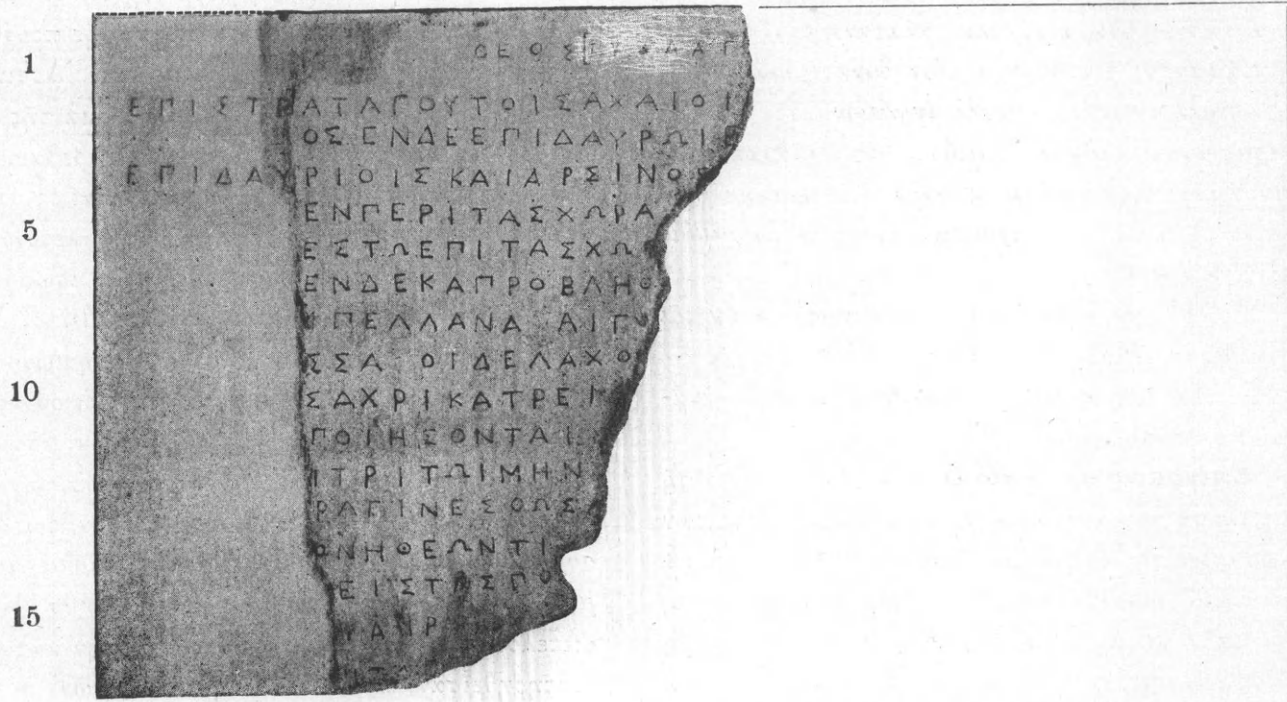 1 ΘΕΟΣ
ΕΠΙΣΤΡΑΤΑΓΟΥΤΟΙΣΑΧΑΙΟΙ
ΟΣΕΝΔΕΕΠΙΔΑΥΡΩΙΕ
ΕΠΙΔΑΥΡΙΟΙΣΚΑΙΑΡΣΙΝΟΕ
5 ΕΝΠΕΡΙΤΑΣΧΩΡΑ
ΕΣΤΩΕΠΙΤΑΣΧΩ
ΕΝΔΕΚΑΠΡΟΒΛΗΘ
ΥΠΕΛΛΑΝΑ ΑΙΓ
ΣΣΑ ΟΙΔΕΛΑΧΟ
10 ΣΑΧΡΙΚΑΤΡΕΙ
ΠΟΙΗΣΟΝΤΑΙ
ΙΤΡΙΤΩΙΜΗΝ
ΡΑΓΙΝΕΣΘΩΣ
ΟΝΗΘΕΩΝΤΙ
ΕΙΣΤΑΣΠΟ
15 ΥΔΝΡ